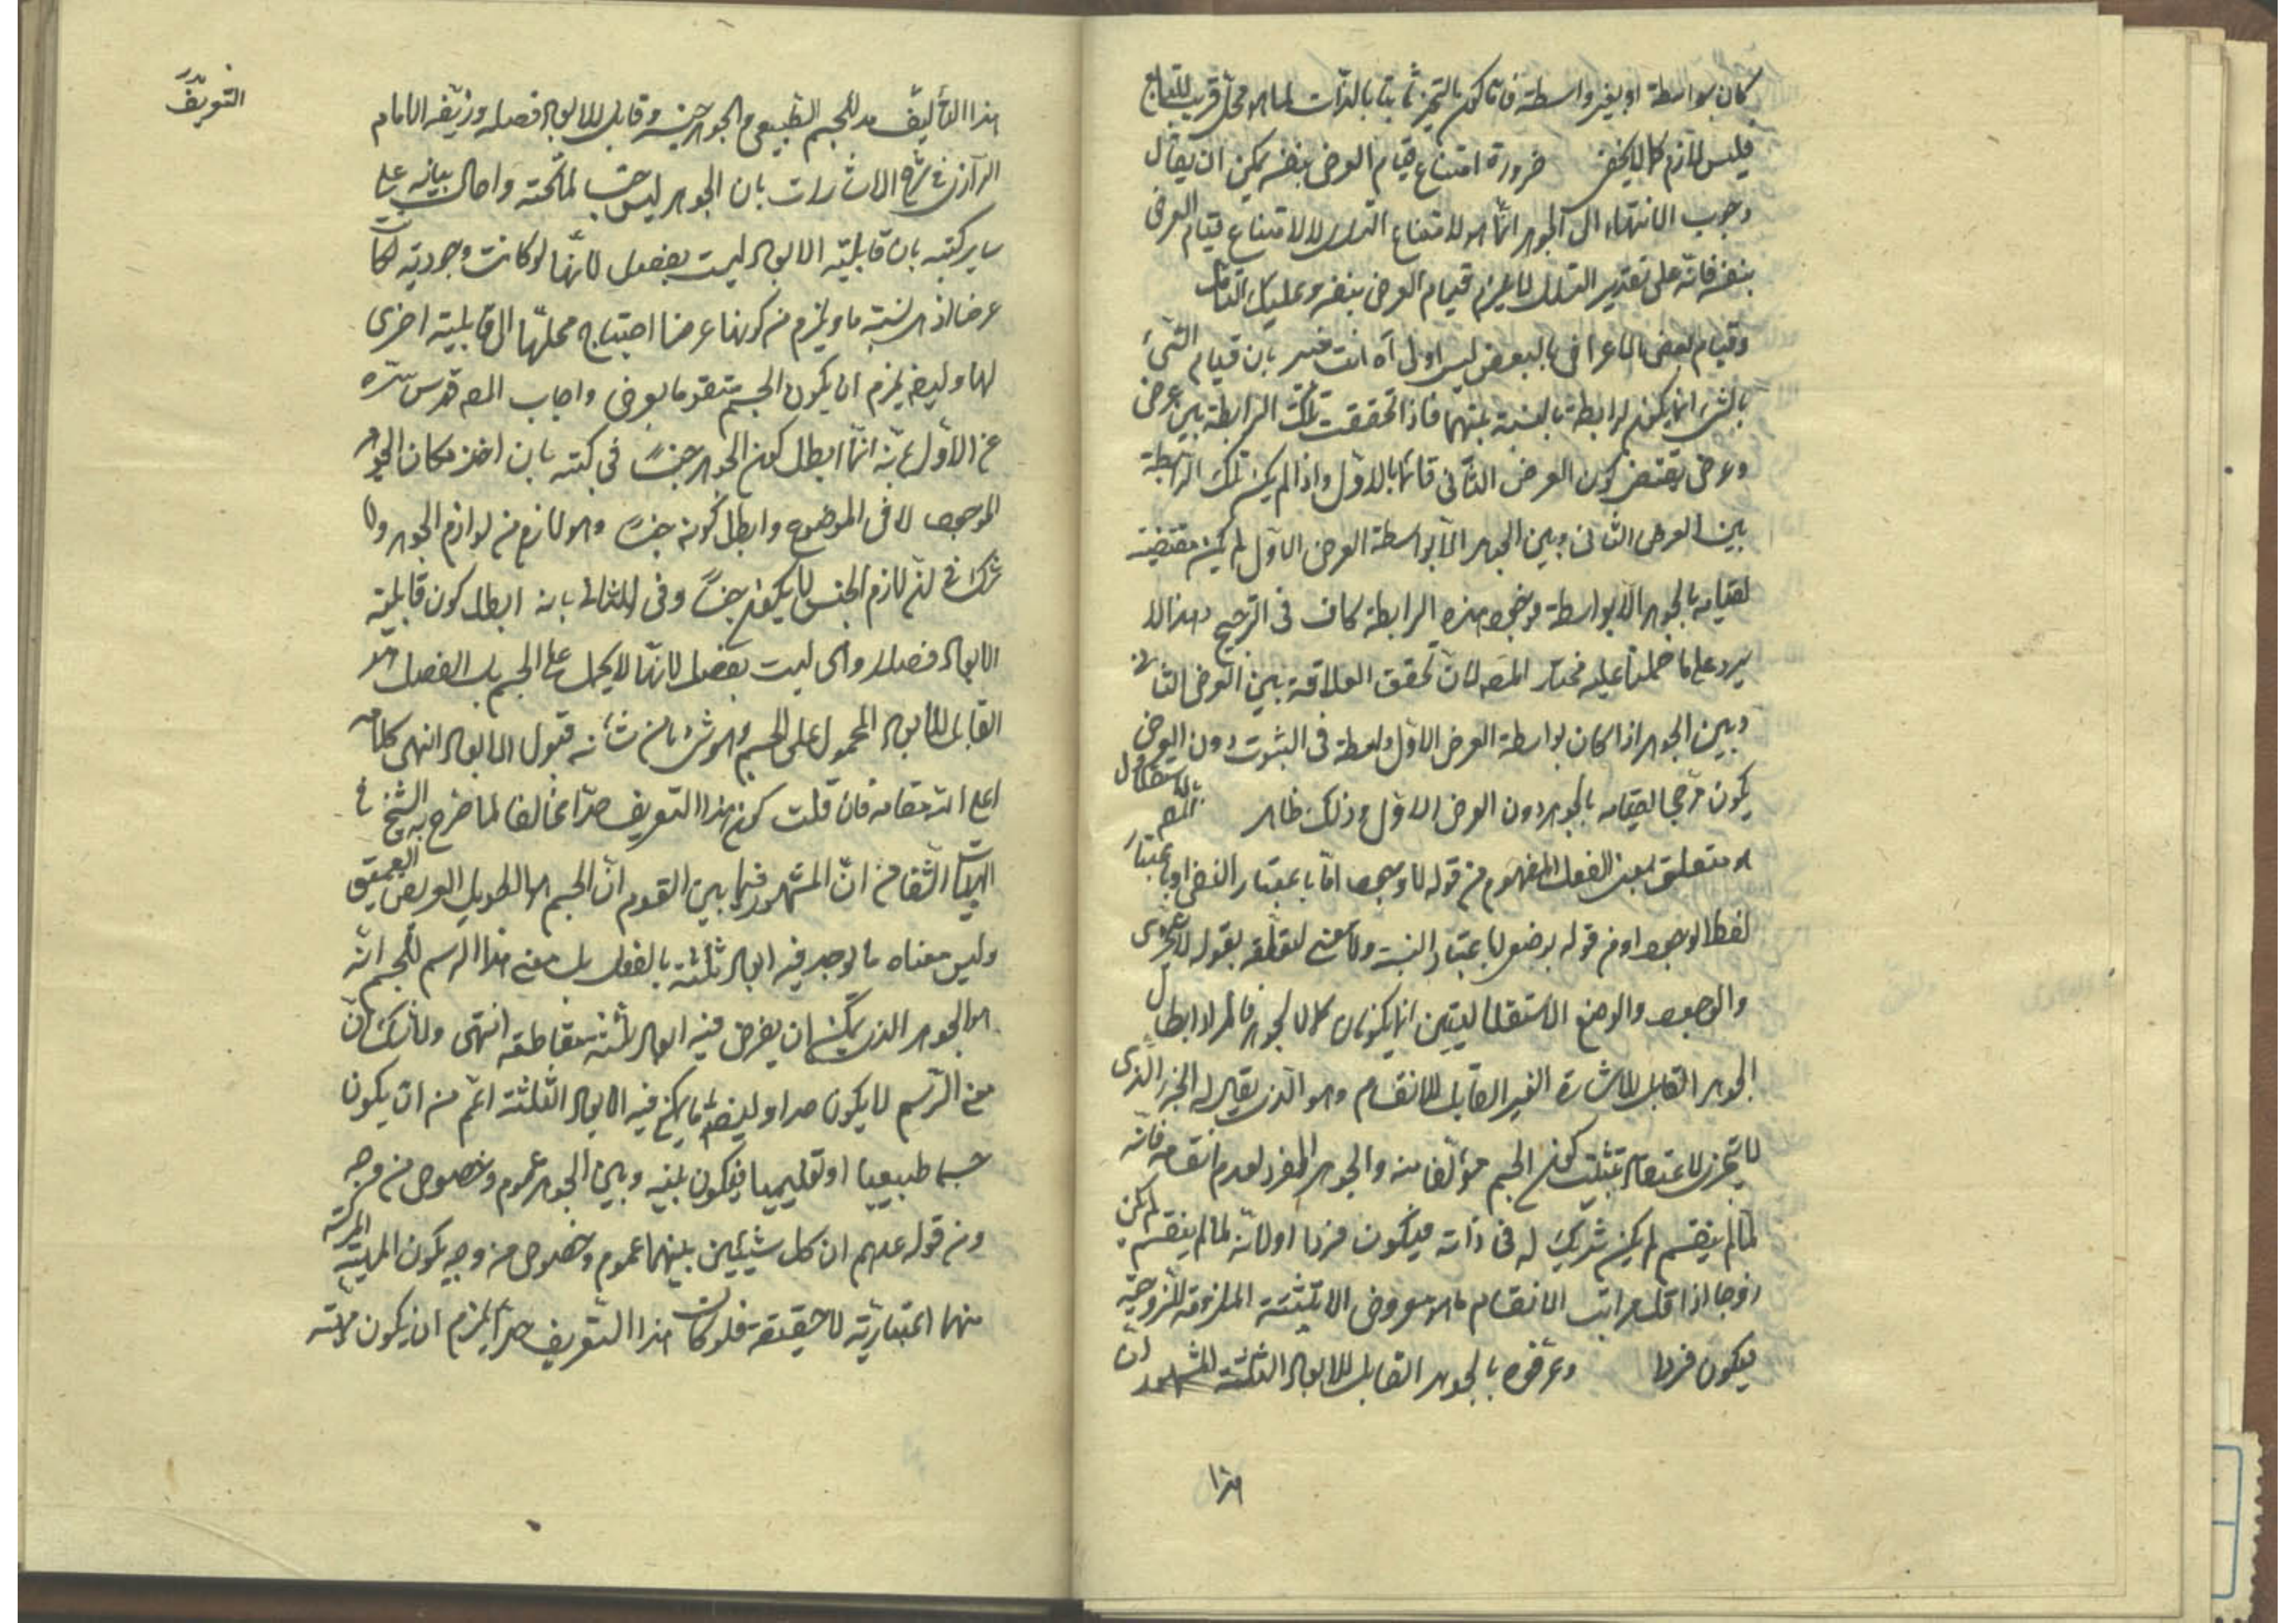 كان بواسطة او بغير واسطة فاما كون التحيز ثابتا بالذات لما هو محل قريب للتابع
فليس لازم كما لا يخفى ضرورة امتناع قيام العرض بنفسه يمكن ان يقال
وجوب الانتهاء الى الجوهر انما هو لامتناع التسلسل لا لامتناع قيام العرض
بنفسه فانه على تقدير التسلسل لا يلزم قيام العرض بنفسه وعليك التأمل
وقيام بعض الاعراض بالبعض ليس اولى آه انت خبير بان قيام الشئ
بالشئ انما يكون لرابطة بالنسبة بينهما فاذا تحققت تلك الرابطة بين عرض
وعرض يقتضى كون العرض الثانى قائما بالاول واذا لم يكن تلك الرابطة
بين العرض الثانى وبين الجوهر الا بواسطة العرض الاول لم يكن مقتضيه
لقيامه بالجوهر الا بواسطة فوجود هذه الرابطة كاف فى الترجيح وهذا لا
يرد على ما حملنا عليه مختار المصه لان تحقق العلاقة بين العرض الثانى
وبين الجوهر اذا كان بواسطة العرض الاول واسطة فى الثبوت دون العروض
يكون مرجحا لقيامه بالجوهر دون العرض الاول وذلك ظاهر بالاستقلال
هو متعلق بمعنى الفعل المفهوم من قوله لا وجود اما باعتبار النفى او باعتبار
لفظ الوجود او من قوله بوضع لا باعتبار النسبة ولا معنى لتعلقه بقوله للاخرى
والوجود والوضع الاستقلاليين انما يكونان للجوهر فالمراد ابطال
الجوهر القابل للاشارة الغير القابل للانقسام وهو الذى يقال له الجزء الذى
لا يتجزى لاعتقاد مثبتيه كون الجسم مؤلفا منه والجوهر الفرد لعدم انقسامه فانه
لما لم ينقسم لم يكن شريك له فى ذاته فيكون فردا او لانه لما لم ينقسم لم يكن
زوجا اذ اقل مراتب الانقسام هو معروض الاثنينية الملزومة للزوجية
فيكون فردا وعرفوه بالجوهر القابل للابعاد الثلثة المشهور ان
هذا
التعريف
هذا التأليف حد للجسم الطبيعى والجوهر جنسه وقابل للابعاد فصله وزيفه الامام
الرازى فى شرح الاشارات بان الجوهر ليس جنسا لما تحته واحال بيانه على
ساير كتبه بان قابلية الابعاد ليست بفصل لانها لو كانت وجودية لكانت
عرضا اذ هى نسبة ما ويلزم من كونها عرضا احتياج محلها الى قابلية اخرى
لها وايضا يلزم ان يكون الجسم متقوما بعرض واجاب المصه قدس سره
عن الاول بانه انما ابطل كون الجوهر جنسا فى كتبه بان اخذ مكان الجوهر
الموجود لا فى الموضوع وابطل كونه جنسا وهو لازم من لوازم الجوهر ولا
شك فى ان لازم الجنس لا يكون جنسا وفى الثانى بانه ابطل كون قابلية
الابعاد فصلا وهى ليست بفصل لانها لا يحمل على الجسم بل الفصل هو
القابل للابعاد المحمول على الجسم وهو شئ ما من شأنه قبول الابعاد انتهى كلامه
اعلى الله مقامه فان قلت كون هذا التعريف حدا مخالف لما صرح به الشيخ فى
الهيات الشفا من ان المشهور فيما بين القوم ان الجسم هو الطويل العريض العميق
وليس معناه ما يوجد فيه ابعاد ثلثة بالفعل بل معنى هذا الرسم للجسم انه
هو الجوهر الذى يمكن ان يفرض فيه ابعاد ثلثة متقاطعة انتهى ولا شك ان
معنى الرسم لا يكون حدا وايضا ما يمكن فيه الابعاد الثلثة اعم من ان يكون
جسما طبيعيا او تعليميا فيكون بينه وبين الجوهر عموم وخصوص من وجه
ومن قواعدهم ان كل شيئين بينهما عموم وخصوص من وجه يكون المهية المركبة
منهما اعتبارية لا حقيقة فلو كان هذا التعريف حدا يلزم ان يكون مهيته